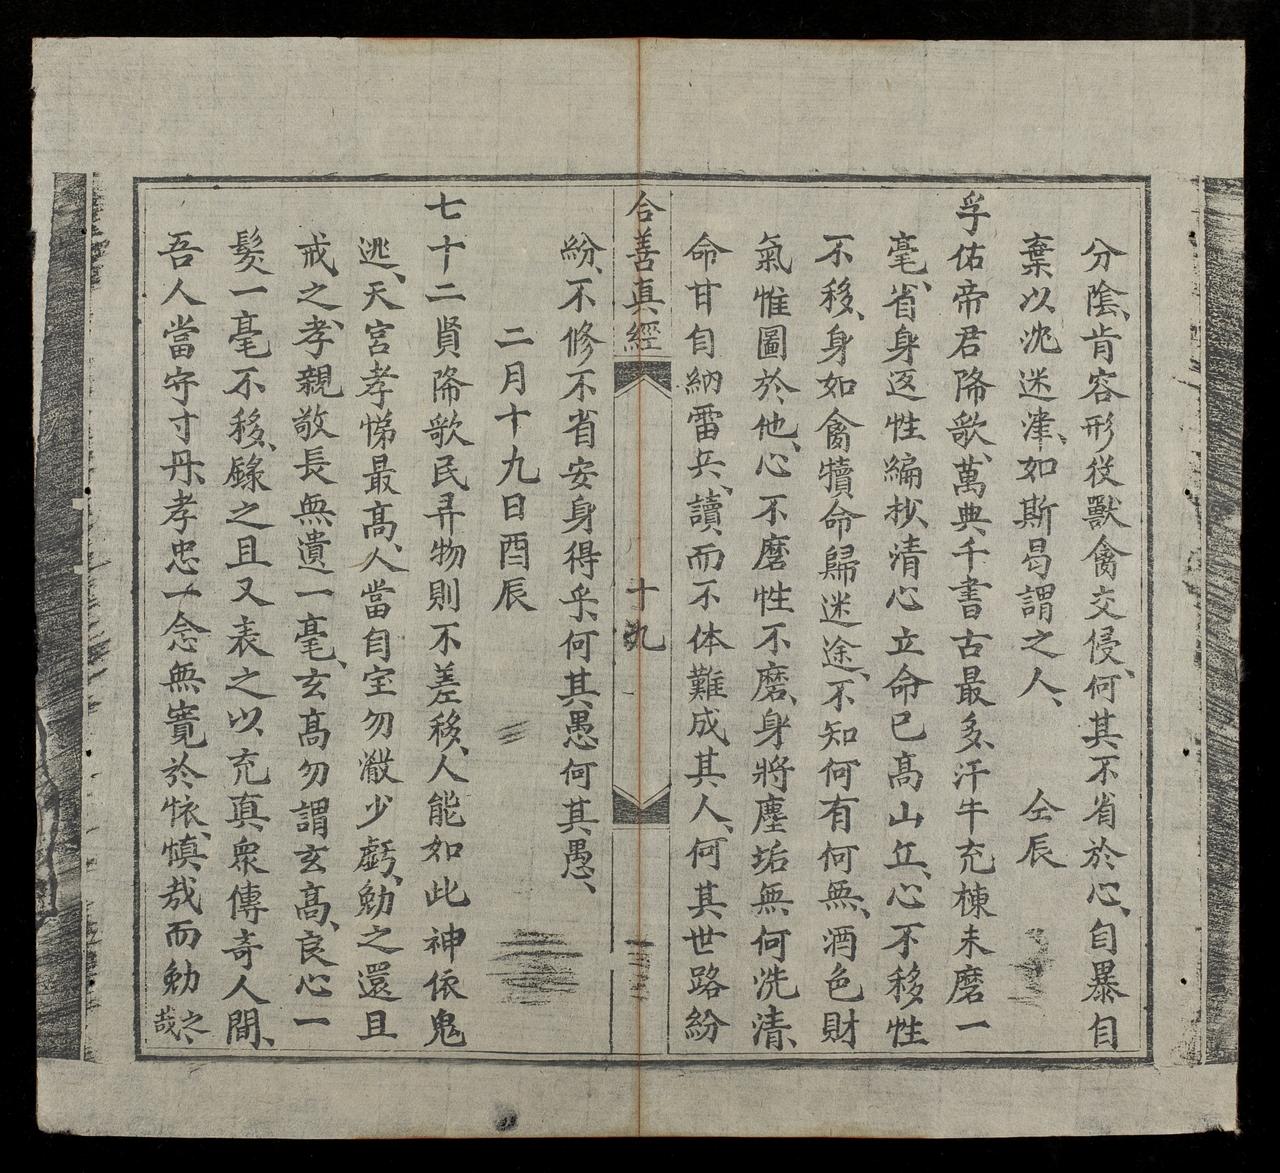 分陰、肯容形役獸禽交侵、何其不省於心、自暴自
棄以沈迷津、如斯曷謂之人、 仝辰
孚佑帝君降歌、萬典千書古最多、汗牛充棟未磨一
毫、省身返性編抄、清心立命已高山立、心不移性
不移、身如禽犢命歸迷途、不知何有何無、酒色財
氣惟圖於他、心不磨性不磨、身將塵垢無何洗清、
命甘自納雷兵、讀而不体難成其人、何其世路紛
合善真經 十九
紛、不修不省安身得乎、何其愚何其愚、
二月十九日酉辰
七十二賢降歌民弄物則不差移、人能如此神依鬼
逃、天宮孝悌最高、人當自室勿㵎少虧、勉之還且
戒之孝、親敬長無遺一毫、玄高勿謂玄高、良心一
髮一毫不移、錄之且又表之以充真、衆傳奇人間、
吾人當守寸丹、孝忠一念無寬於怅、慎哉而勉之哉